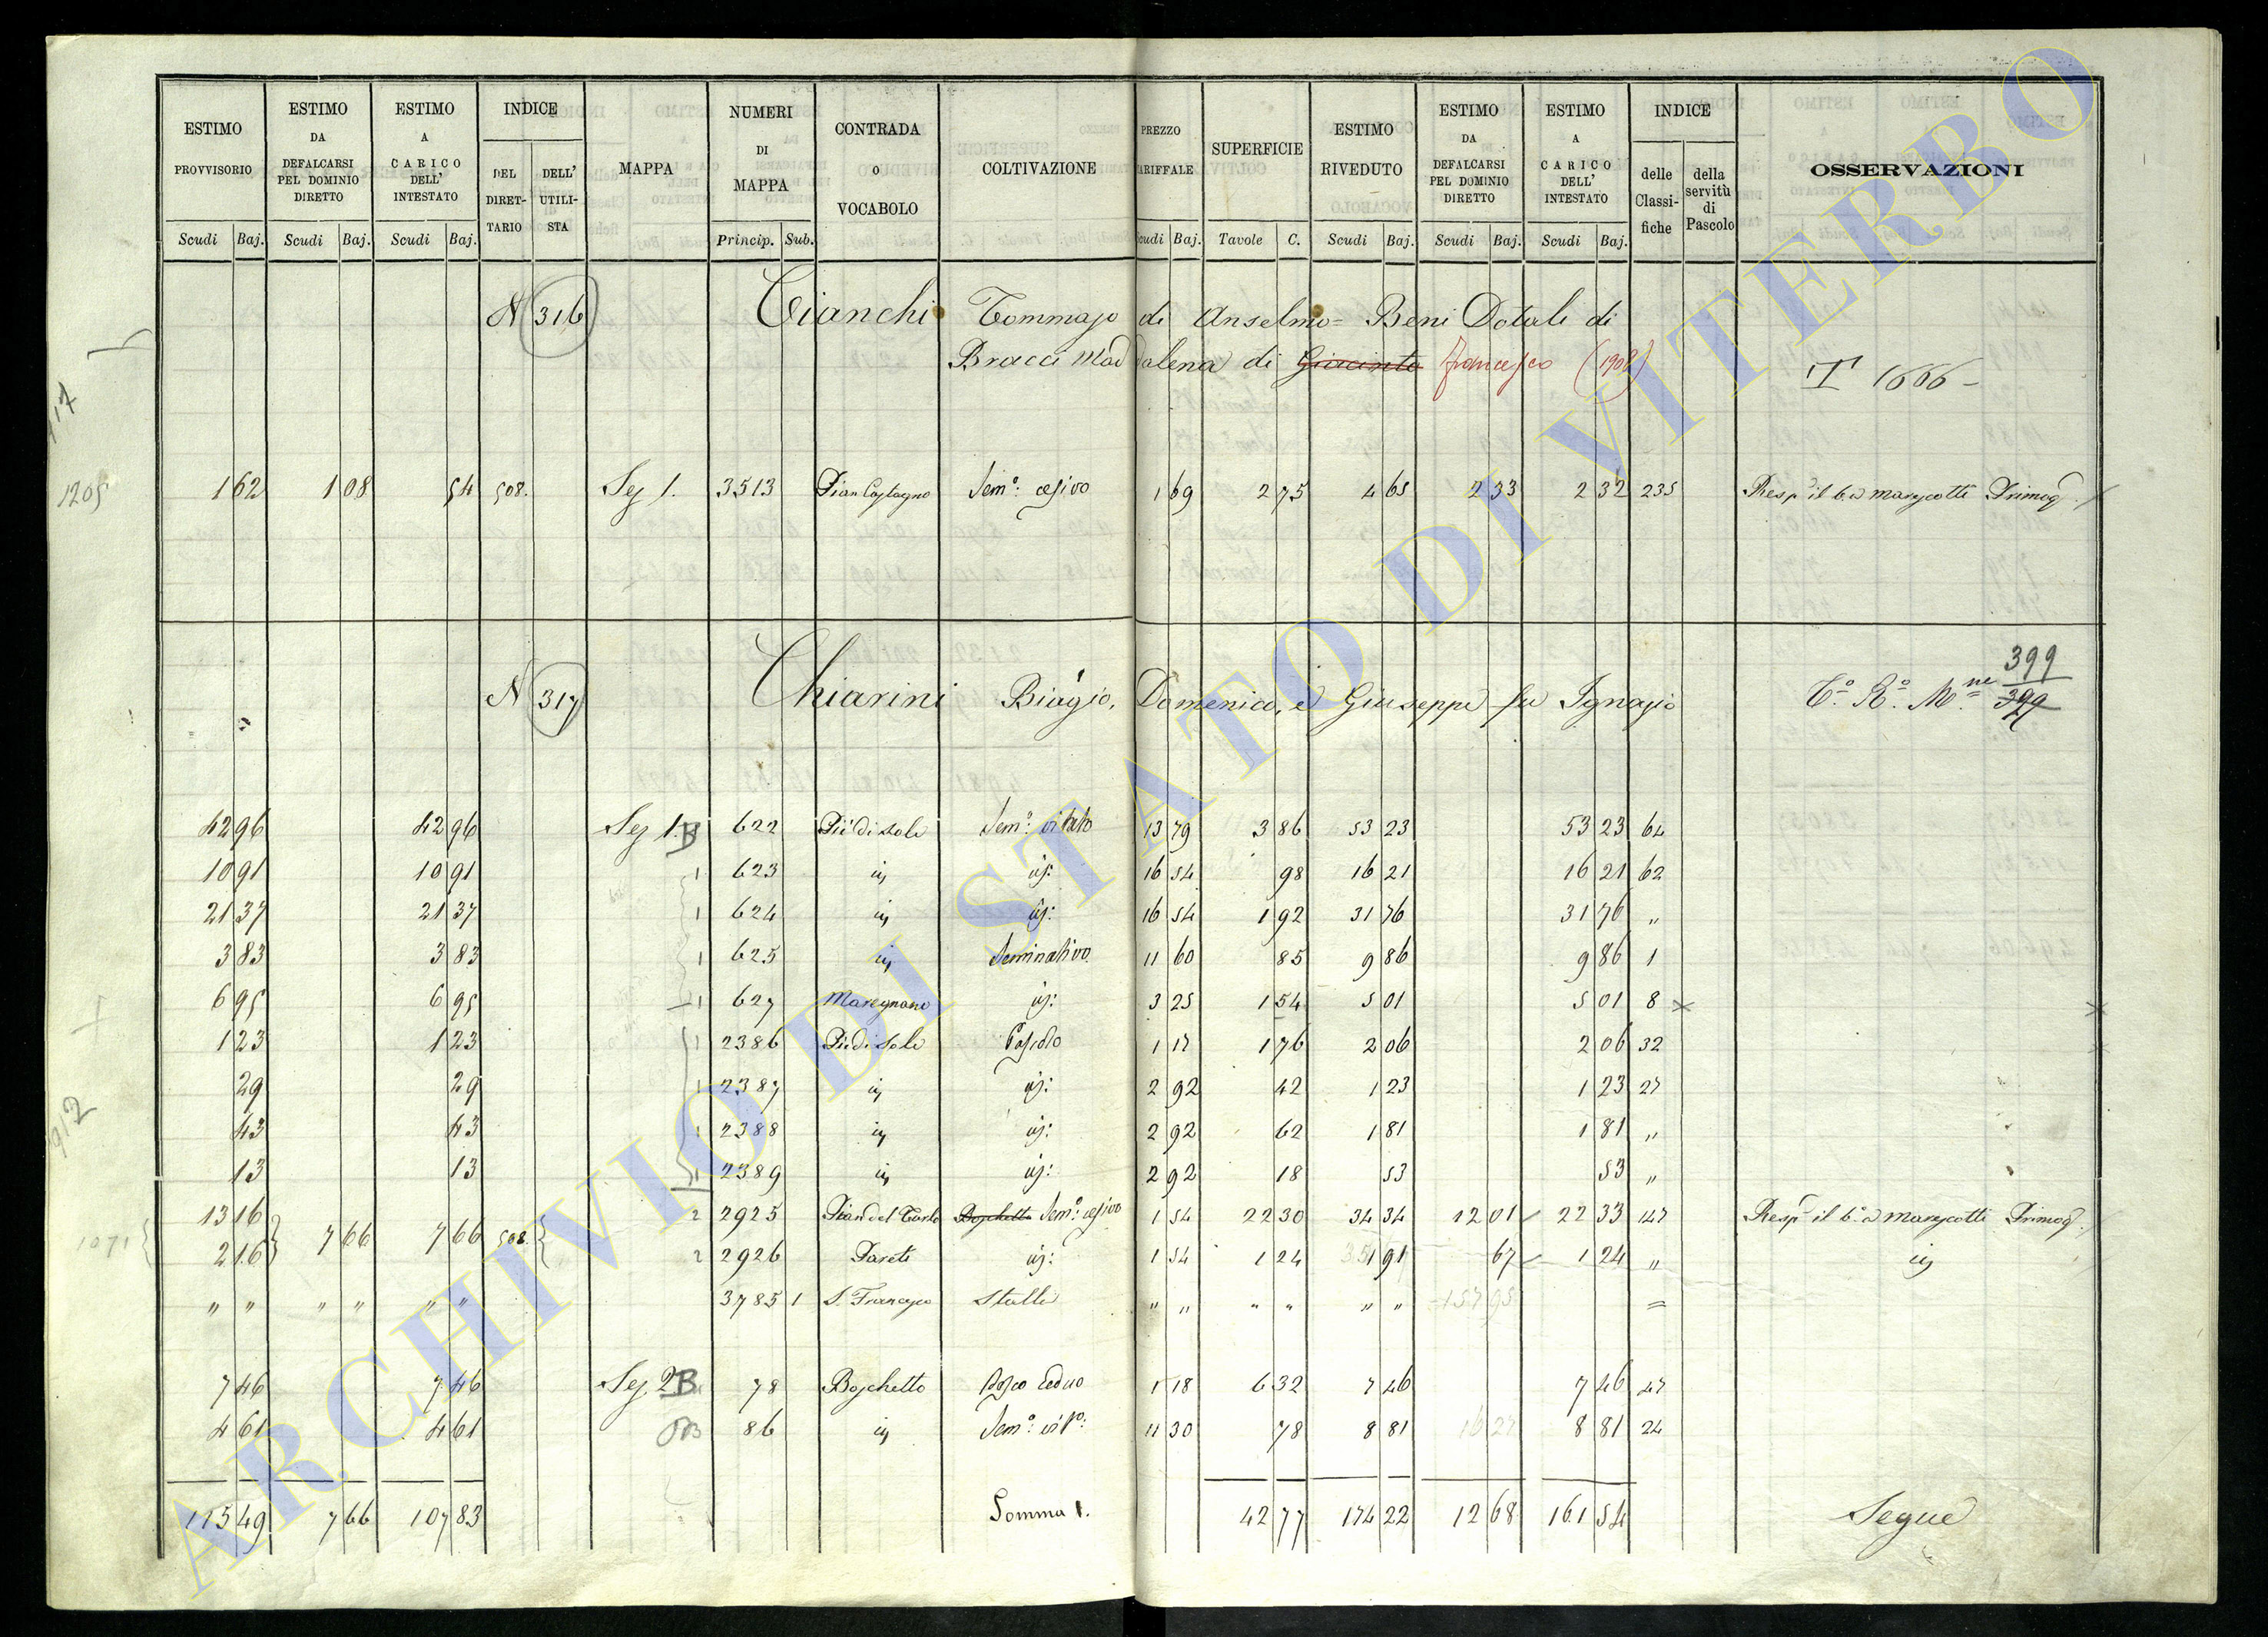 ESTIMO PROVVISORIO Scudi Baj. | ESTIMO DA DEFALCARSI PEL DOMINIO DIRETTO Scudi Baj. | ESTIMO A CARICO DELL' INTESTATO Scudi Baj. | INDICE DEL DIRET-TARIO | DELL' UTILI-STA | MAPPA | NUMERI DI MAPPA Princip. Sub. | CONTRADA O VOCABOLO | COLTIVAZIONE | PREZZO TARIFFALE Scudi Baj. | SUPERFICIE Tavole C. | ESTIMO RIVEDUTO Scudi Baj. | ESTIMO DA DEFALCARSI PEL DOMINIO DIRETTO Scudi Baj. | ESTIMO A CARICO DELL' INTESTATO Scudi Baj. | INDICE delle Classi-fiche | della servitù di Pascolo | OSSERVAZIONI
N 316 Cianchi Tommaso di Anselmo = Beni Dotali di
Bracci Maddalena di Giacinto francesco (1908) T 1666 -
1205 1 62 1 08 54 508. Sez 1. 3513 Pian Castagno Sem.o cesivo 1 69 2 75 4 65 2 33 2 32 235 Resp il Marescotti Primog
N 317 Chiarini Biagio, Domenico, e Giuseppe fu Ignazio 399
399
42 96 42 96 Sez 1. B 622 Piè di sole Sem.o vitato 13 79 3 86 53 23 53 23 64
10 91 10 91 1 623 id: 16 54 98 16 21 16 21 62
21 37 21 37 1 624 id: 16 54 1 92 31 76 31 76 "
3 83 3 83 1 625 Seminativo 11 60 85 9 86 9 86 1
6 95 6 95 1 627 Maregnano id: 3 25 1 54 5 01 5 01 8 x
1 23 1 23 1 2386 Piè di sole Pascolo 1 17 1 76 2 06 2 06 32
29 29 1 2387 id: 2 92 42 1 23 1 23 27
43 43 1 2388 id: 2 92 62 1 81 1 81 "
13 13 1 2389 id: 2 92 18 53 53 "
13 16 2 2925 Boschetto Sem.o cesivo 1 54 22 30 34 34 12 01 22 33 147 Resp il Marescotti Primog
1071 2 16 7 66 7 66 508. 2 2926 Pareti id: 1 54 1 24 1 91 67 1 24 " id
" " " " " " 3785 1 S. Francesco Stalla " " " " " " =
7 46 7 46 Sez 2 B 78 Boschetto Bosco Ceduo 1 18 6 32 7 46 7 46 47
4 61 4 61 86 Sem.o vit.o: 11 30 78 8 81 8 81 24
115 49 7 66 107 83 Somma 1. 42 77 174 22 12 68 161 54 Segue
ARCHIVIO DI STATO DI VITERBO